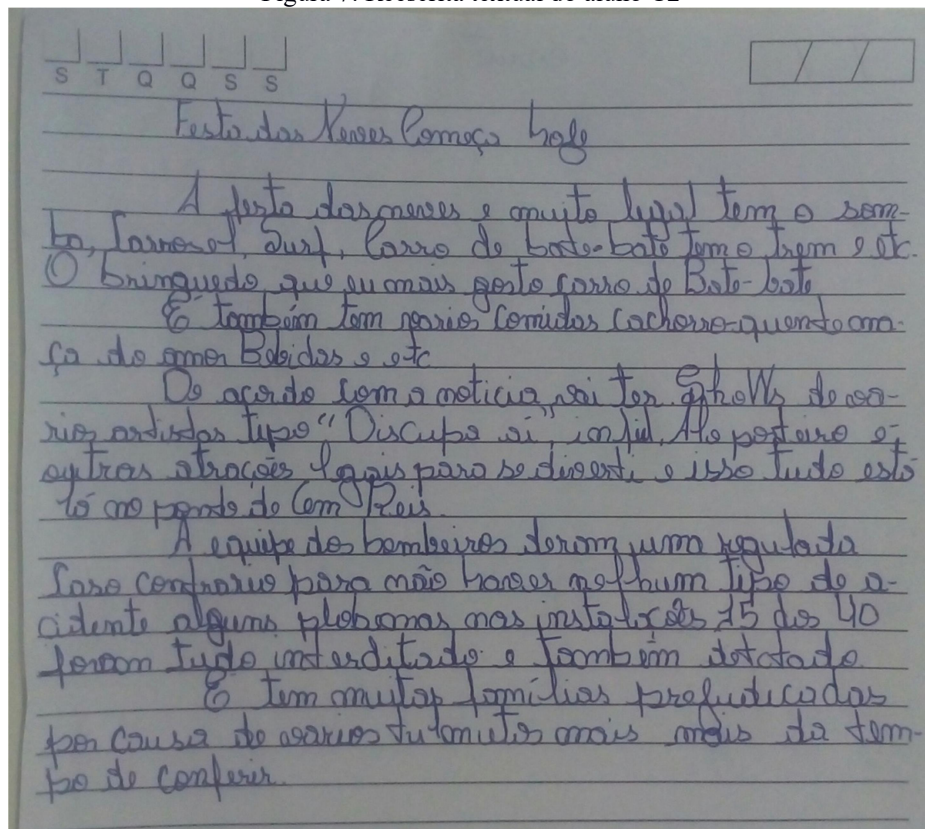 S T Q Q S S
Festa das Neves Começa hoje
A festa das neves e muito legal tem o sam-
ba, Carrosel, Surf, Carro de bate-bate tem o trem e etc.
O brinquedo que eu mais gosto carro de Bate-bate
E também tem varias Comidas Cachorro-quente ma-
ça do amor Bebidas e etc
De acordo com a noticia vai ter Shows de va-
rios artistas tipo "Discupa ai", Alo porteiro e
outras atrações legais para se diverti e isso tudo está
lá no ponto de Cem Reis.
A equipe dos bombeiros deram uma regulada
Caso contrario para não haver nelhum tipo de a-
cidente alguns plobomas nas instalacões 15 dos 40
foram tudo interditado e também detctado
E tem muitas famílias prejudicadas
por causa de varios tulmutos mais mais da tem-
po de conferir.